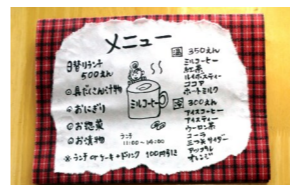 メニュー
日替りランチ
500えん
◎具だくさん汁物
◎おにぎり
◎お惣菜
◎お漬物
ミルクコーヒー
ランチ
11:00~14:00
※ランチ or ケーキ+ドリンク 100円引き
温 350えん
ミルクコーヒー
紅茶
ルイボスティー
ココア
ホットミルク
冷 300えん
アイスコーヒー
アイスティー
ウーロン茶
コーラ
三ツ矢サイダー
アップル
オレンジ